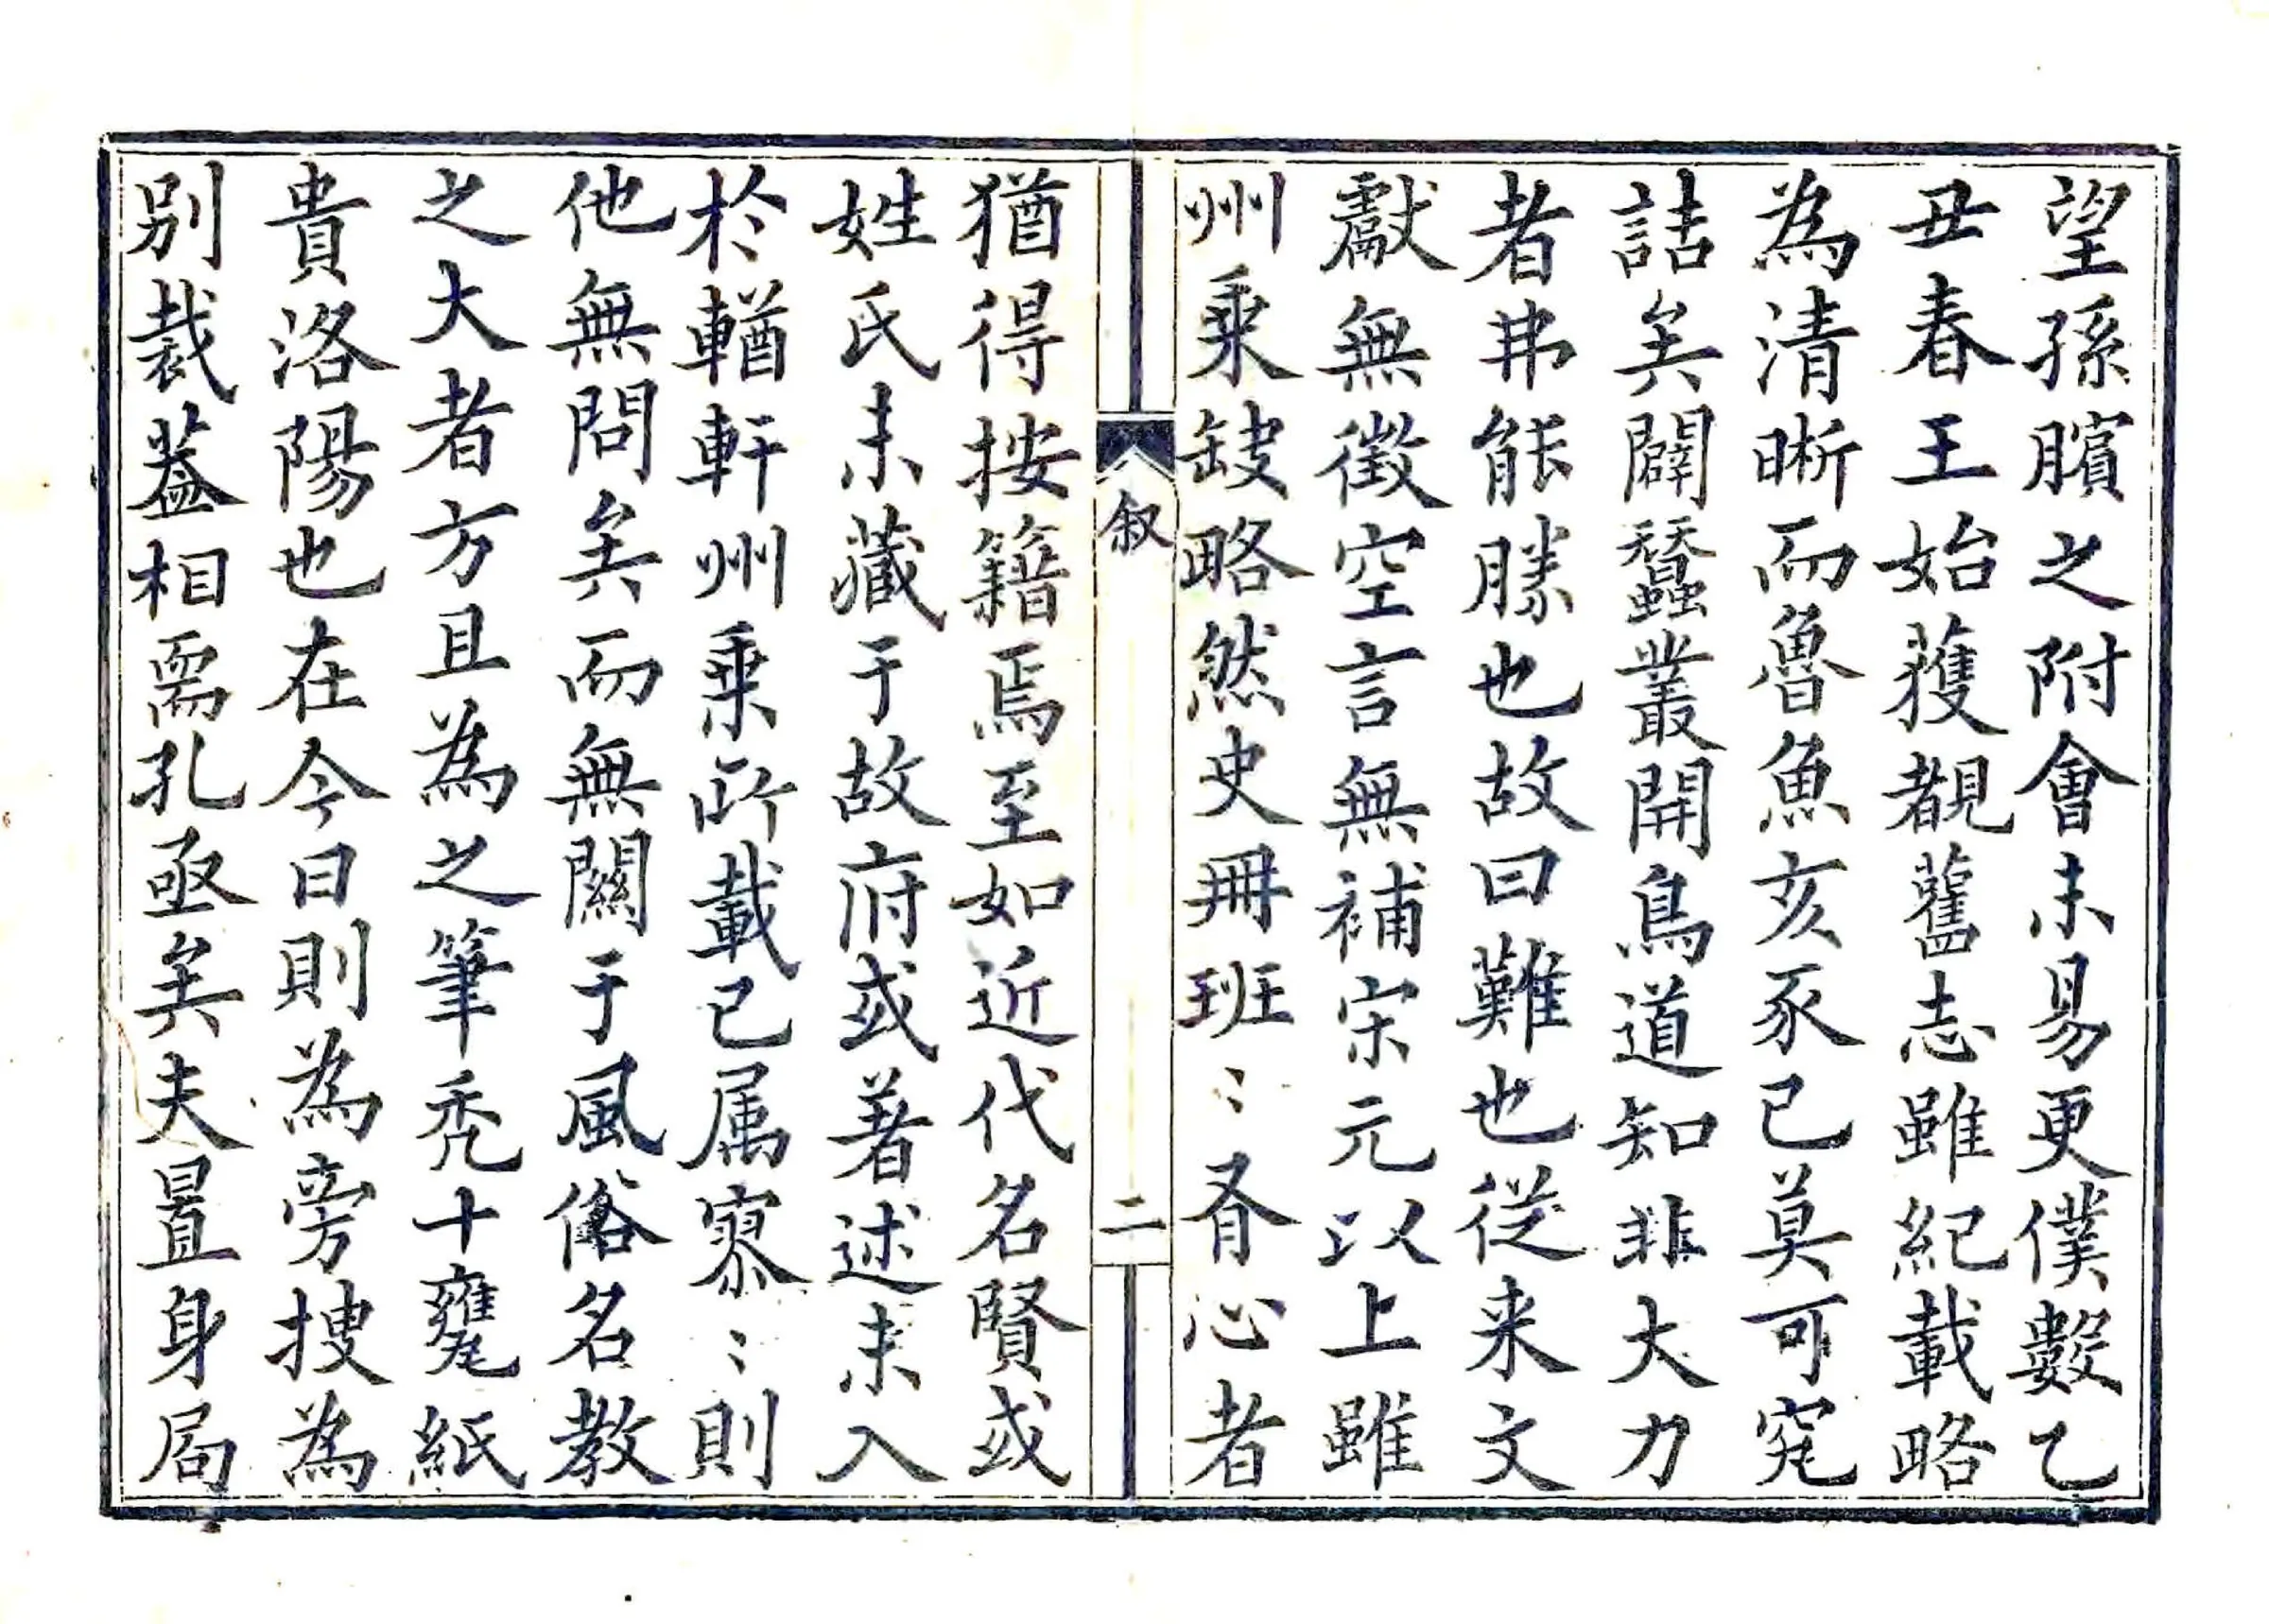 望孫臏之附會未易更僕數乙
丑春王始獲覩舊志雖紀載略
為清晰而魯魚亥豕已莫可究
詰矣闢蠶叢開鳥道知非大力
者弗能勝也故曰難也從来文
獻無徵空言無補宋元以上雖
州乘缺略然史冊班〻有心者
叙
二
猶得按籍焉至如近代名賢或
姓氏未藏于故府或著述未入
於輶軒州乘所載已属寥〻則
他無問矣而無關于風俗名教
之大者方且為之筆秃十甕紙
貴洛陽也在今日則為旁搜為
別裁葢相需孔亟矣夫置身局